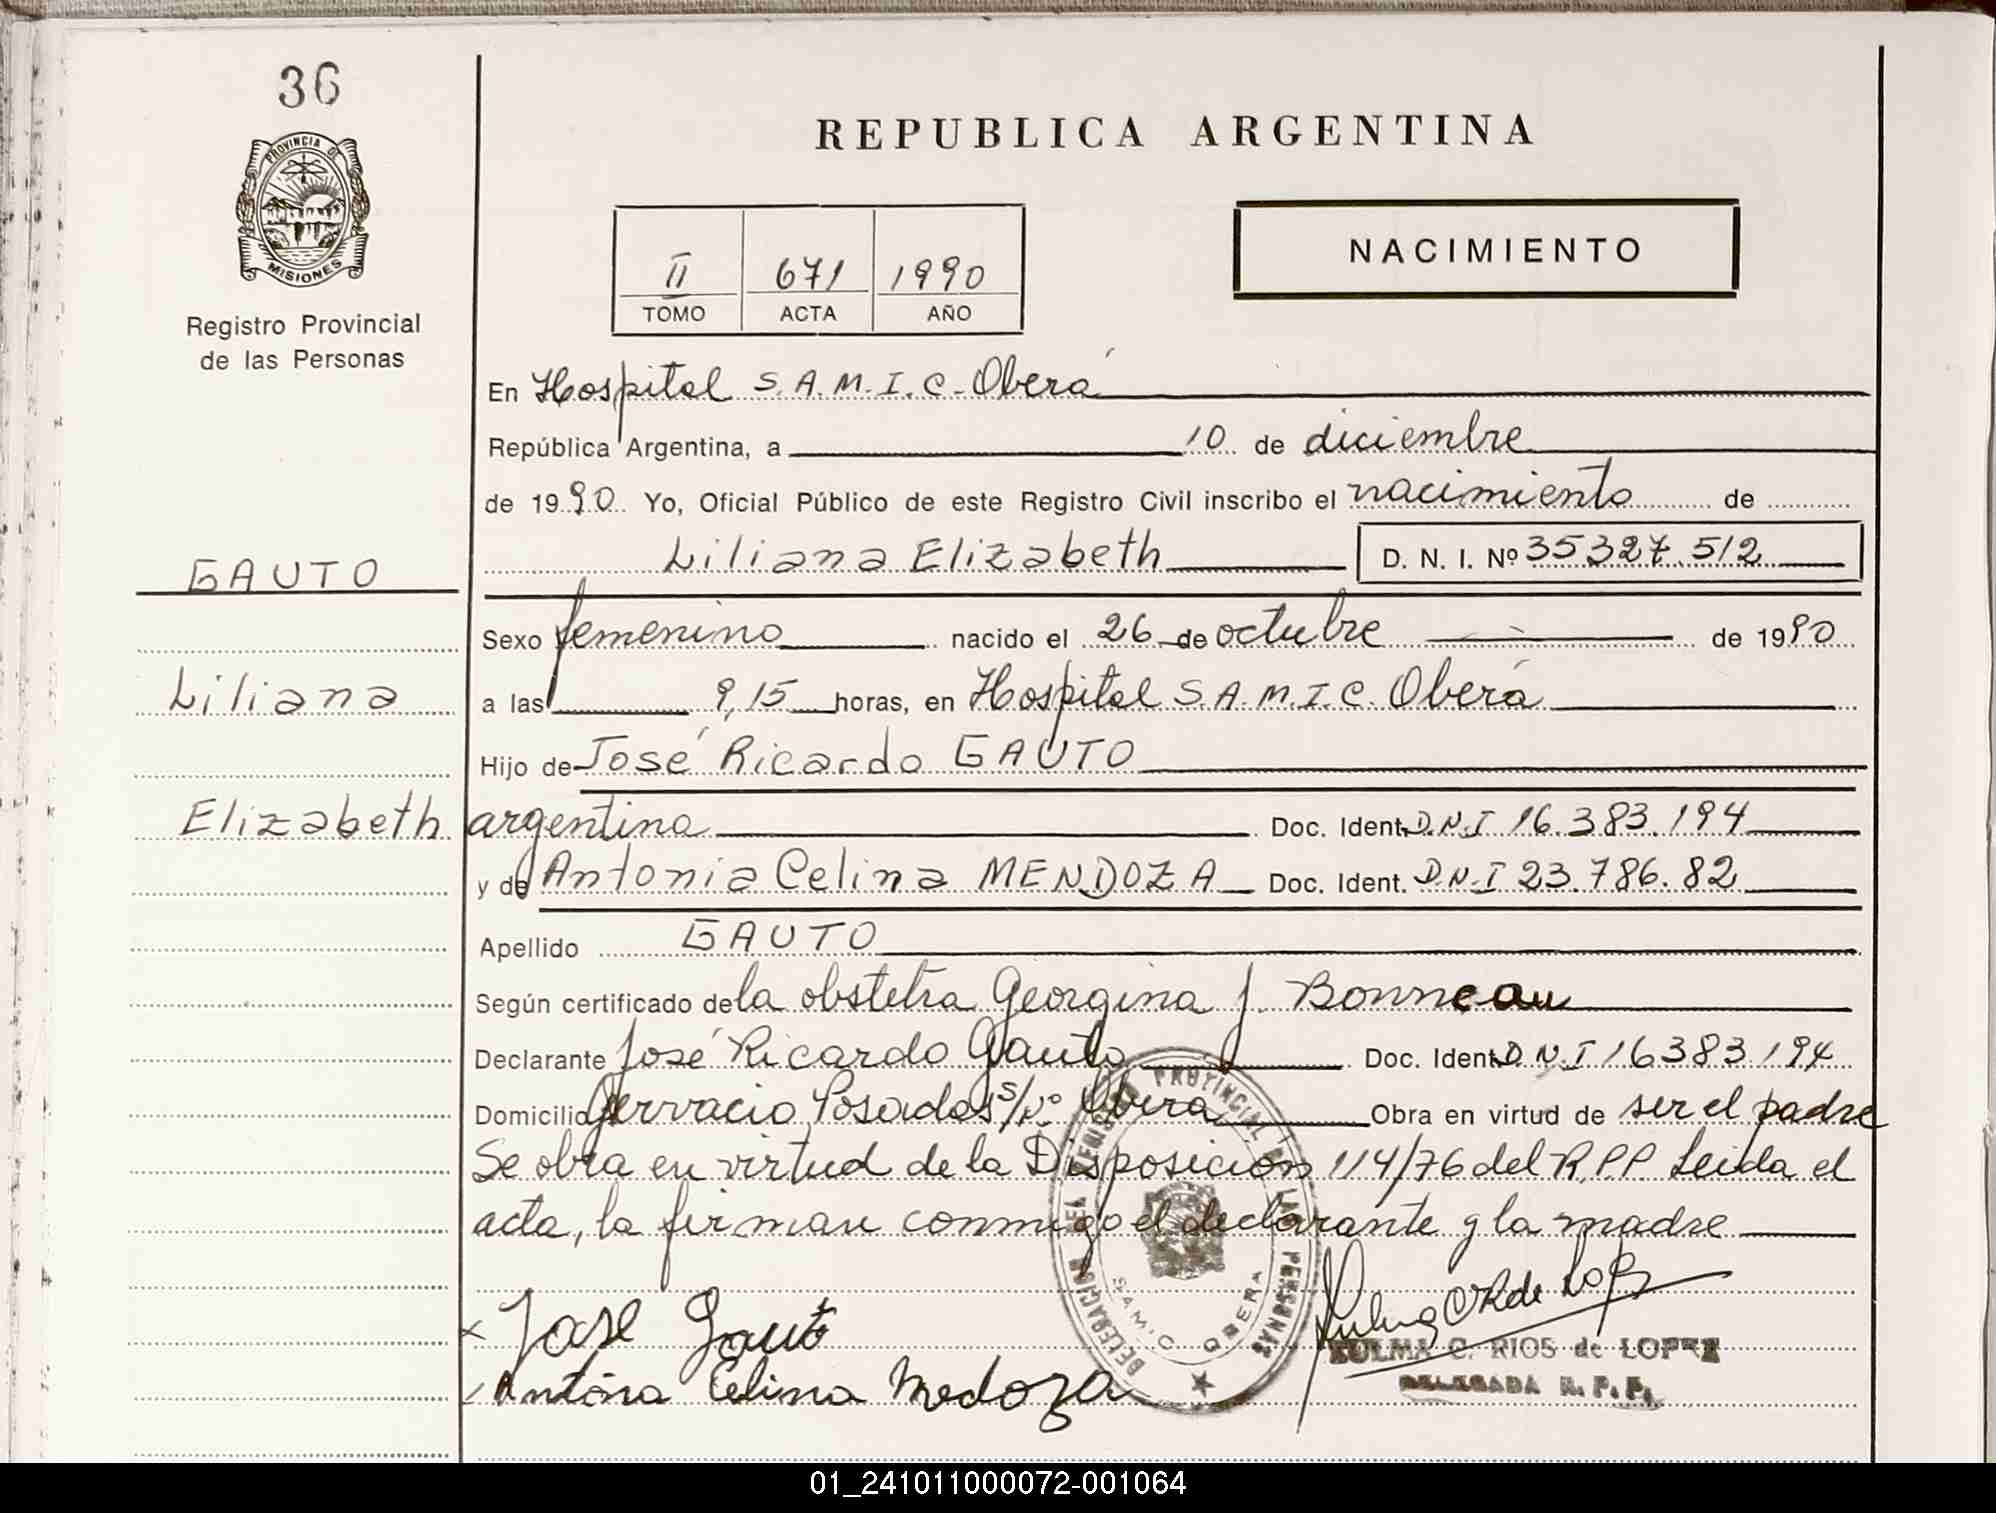 36
PROVINCIA DE
MISIONES
Registro Provincial
de las Personas
REPUBLICA ARGENTINA
NACIMIENTO
II 671 1990
TOMO ACTA AÑO
En Hospital S.A.M.I.C. Oberá
República Argentina, a 10 de diciembre
de 1990 Yo, Oficial Público de este Registro Civil inscribo el nacimiento de
Liliana Elizabeth D. N. I. Nº 35327.512
GAUTO
Sexo femenino nacido el 26 de octubre de 1990
Liliana
a las 9,15 horas, en Hospital S.A.M.I.C. Oberá
Hijo de José Ricardo GAUTO
Elizabeth
argentina Doc. Ident. D.N.I 16.383.194
y de Antonia Celina MENDOZA Doc. Ident. D.N.I 23.786.82
Apellido GAUTO
Según certificado de la obstetra Georgina J. Bonneau
Declarante José Ricardo Gauto Doc. Ident. D.N.I 16383.194
Domicilio Gervacio Posadas s/Nº Oberá Obra en virtud de ser el padre
Se obra en virtud de la Disposición 114/76 del R.P.P. Leida el
acta, la firman conmigo el declarante y la madre
DELEGACION DEL REGISTRO PROVINCIAL DE LAS PERSONAS
SAMIC OBERA
x Jose Gauto
Antonia Celina Medoza
Zulma C R de Lopez
ZULMA C. RIOS de LOPEZ
DELEGADA R. P. P.
01_241011000072-001064